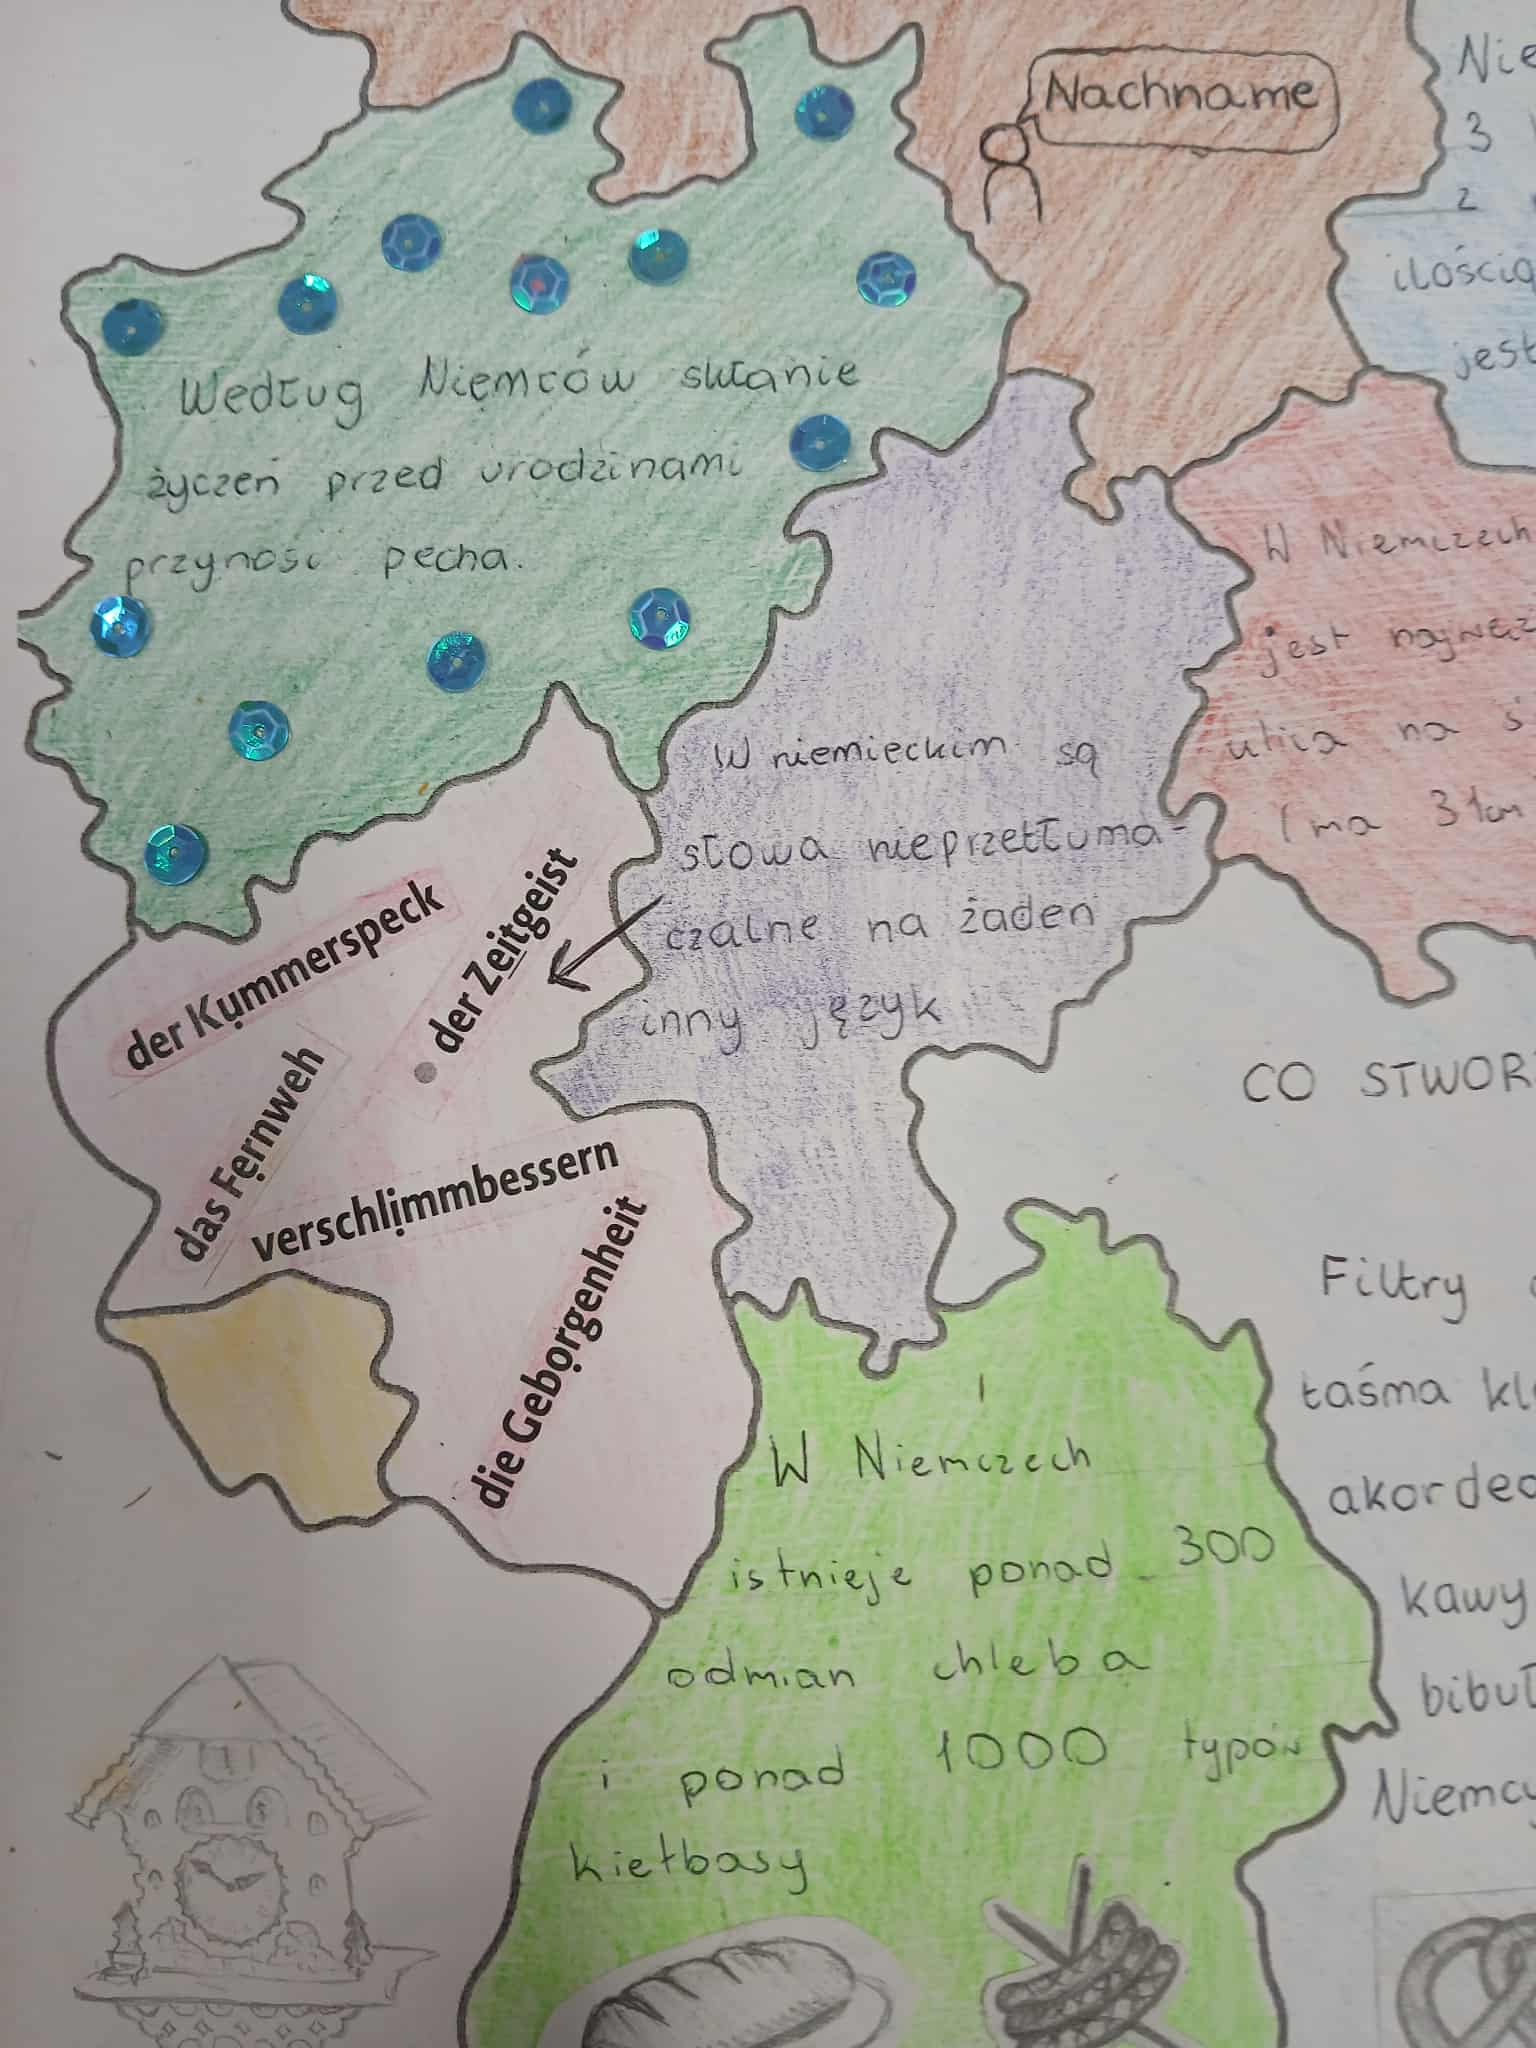 Nachname
Nie
3
2
ilością
jest
Według Niemców skłanie
życzeń przed urodzinami
przynosi pecha.
W Niemczech
jest najwęż
ulica na ś
(ma 31cm
W niemieckim są
słowa nieprzetłuma-
czalne na żaden
inny język
der Kummerspeck
der Zeitgeist
das Fernweh
verschlimmbessern
die Geborgenheit
CO STWOR
Filtry
taśma kl
akordeo
kawy
bibuł
Niemcy
W Niemczech
istnieje ponad 300
odmian chleba
i ponad 1000 typów
kiełbasy